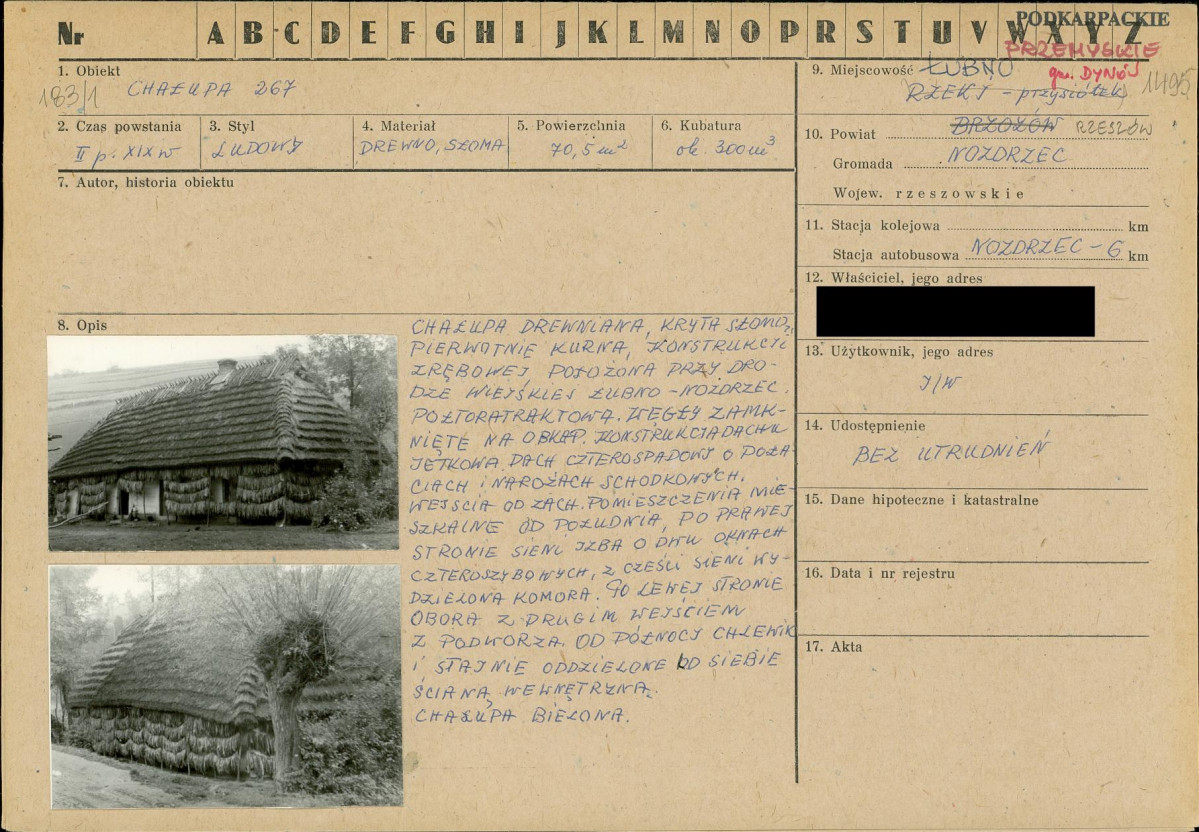 Nr A B C D E F G H I J K L M N O P R S T U V W X Y Z
PODKARPACKIE
PRZEMYSKIE
gm. DYNÓW
1. Obiekt
183/1 CHAŁUPA 267
2. Czas powstania
II p. XIX w
3. Styl
LUDOWY
4. Materiał
DREWNO, SŁOMA
5. Powierzchnia
70,5 m²
6. Kubatura
ok. 300 m³
7. Autor, historia obiektu
8. Opis
CHAŁUPA DREWNIANA, KRYTA SŁOMĄ,
PIERWOTNIE KURNA, KONSTRUKCJI
ZRĘBOWEJ POŁOŻONA PRZY DRO-
DZE WIEJSKIEJ ŁUBNO - NOZDRZEC.
POŁTORATRAKTOWA. WĘGŁY ZAMK-
NIĘTE NA OBŁAP. KONSTRUKCJA DACHU
JĘTKOWA. DACH CZTEROSPADOWY O POŁA-
CIACH I NAROŻACH SCHODKOWYCH.
WEJŚCIA OD ZACH. POMIESZCZENIA MIE-
SZKALNE OD POŁUDNIA, PO PRAWEJ
STRONIE SIENI IZBA O DWU OKNACH
CZTEROSZYBOWYCH, Z CZEŚCI SIENI WY-
DZIELONA KOMORA. PO LEWEJ STRONIE
OBORA Z DRUGIM WEJŚCIEM
Z PODWORZA. OD PÓŁNOCY CHLEWIK
I STAJNIE ODDZIELONE OD SIEBIE
ŚCIANĄ WEWNĘTRZNĄ.
CHAŁUPA BIELONA.
9. Miejscowość ŁUBNO
RZEKI - przysiółek 1495
10. Powiat BRZOZÓW RZESZÓW
Gromada NOZDRZEC
Wojew. rzeszowskie
11. Stacja kolejowa km
Stacja autobusowa NOZDRZEC - 6 km
12. Właściciel, jego adres
13. Użytkownik, jego adres
J/W
14. Udostępnienie
BEZ UTRUDNIEŃ
15. Dane hipoteczne i katastralne
16. Data i nr rejestru
17. Akta